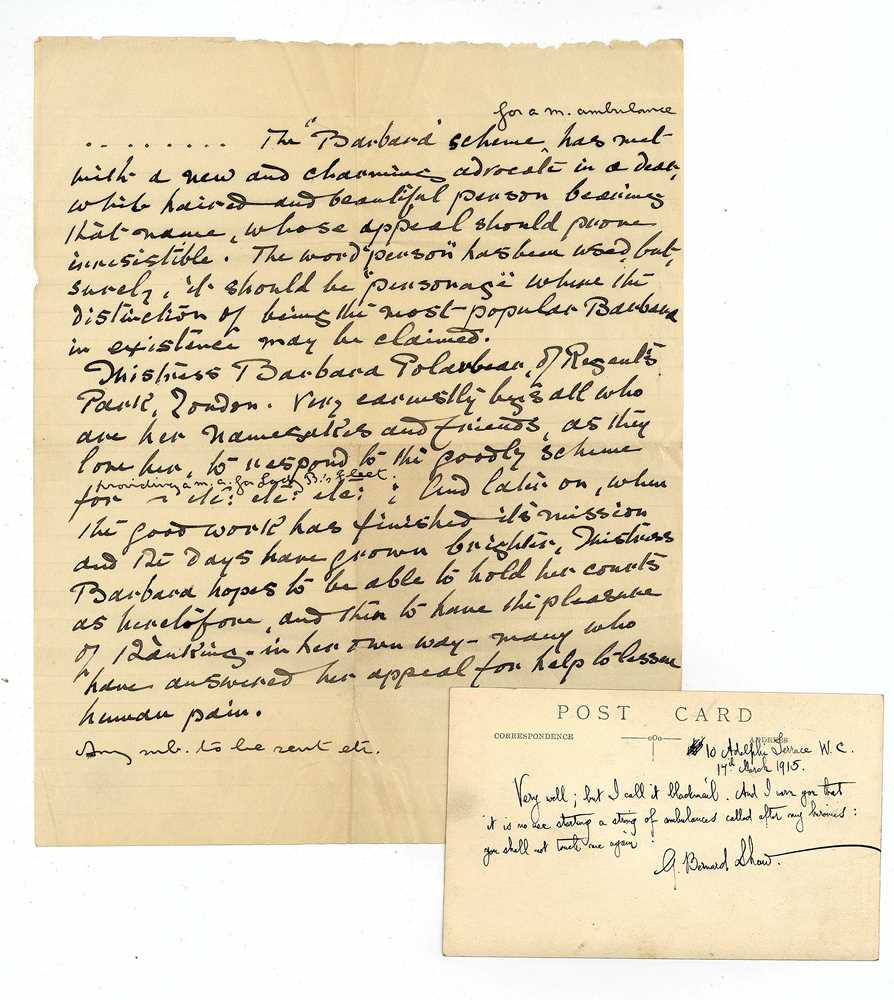 for a m. ambulance
. . . . . . . . . The "Barbara" scheme, has met
with a new and charming advocate in a dear,
white haired and beautiful person bearing
that name, whose appeal should prove
irresistible. The word "person" has been used, but,
surely, it should be "personage" where the
distinction of being the most popular Barbara
in existence may be claimed.
Mistress Barbara Polarbear, of Regent's
Park, London. Very earnestly begs all who
are her namesakes and friends, as they
love her, to respond to the goodly scheme
providing a m. a. for Lady B.'s fleet.
for ~ etc: etc: etc: ; And later on, when
the good work has finished its mission
and the days have grown brighter, Mistress
Barbara hopes to be able to hold her courts
as heretofore, and then to have the pleasure
of thanking - in her own way - many who
have answered her appeal for help to lessen
human pain.
Any sub. to be sent etc.
POST CARD
CORRESPONDENCE
ADDRESS
10 Adelphi Terrace W.C.
17th March 1915.
Very well; but I call it blackmail. And I warn you that
it is no use starting a string of ambulances called after my heroines:
you shall not touch me again.
G. Bernard Shaw.